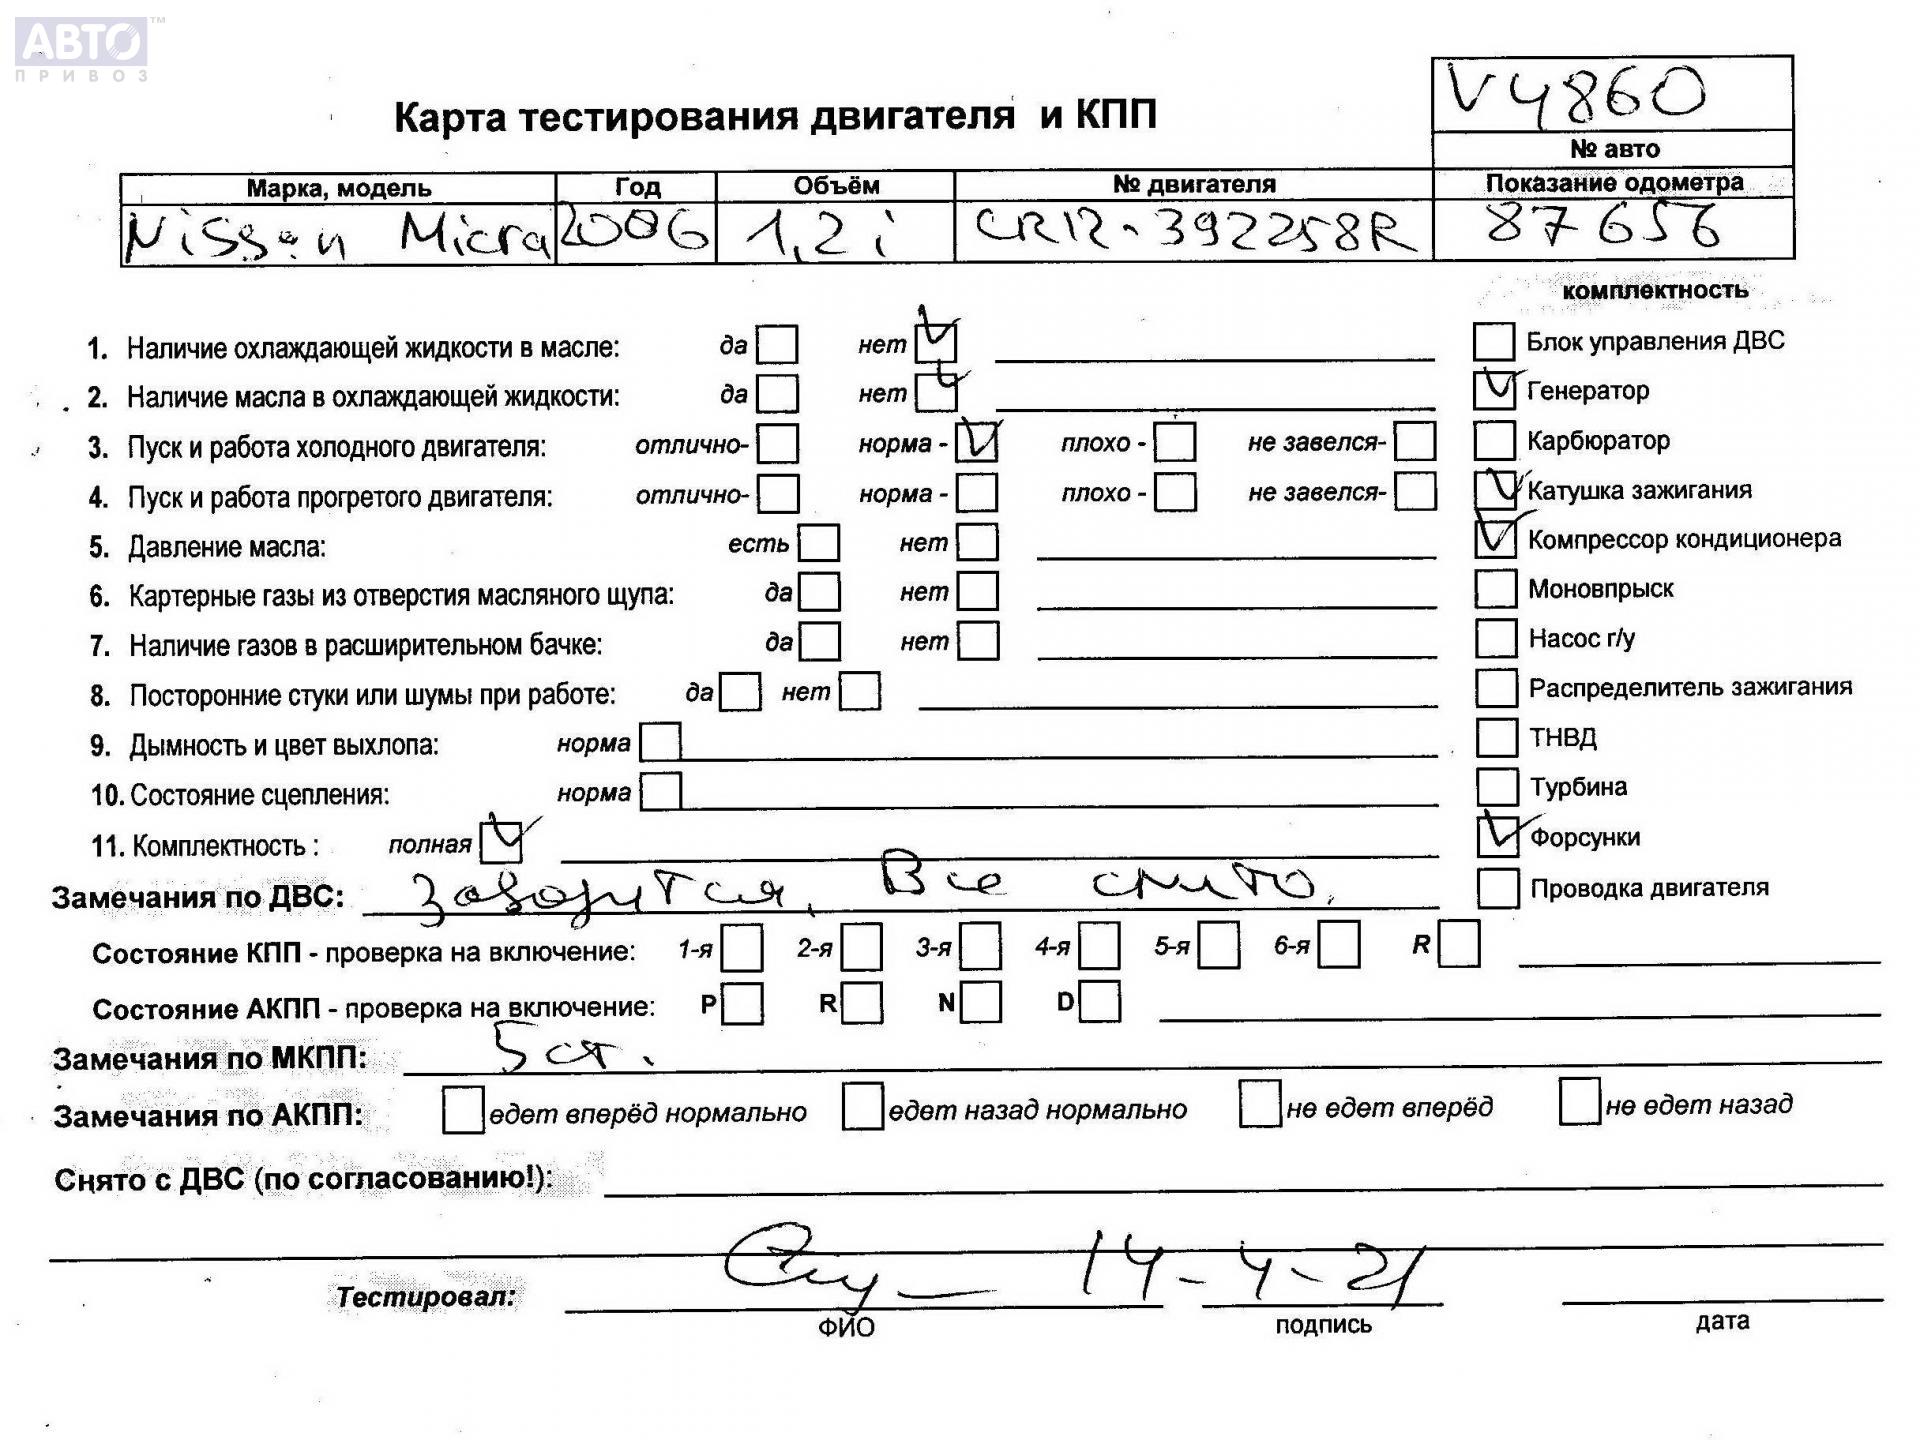 АВТО™
ПРИВОЗ
V4860
Карта тестирования двигателя и КПП
№ авто
Марка, модель Год Объём № двигателя Показание одометра
Nissan Micra 2006 1,2i CR12-392258R 87656
комплектность
1. Наличие охлаждающей жидкости в масле: да нет Блок управления ДВС
2. Наличие масла в охлаждающей жидкости: да нет Генератор
3. Пуск и работа холодного двигателя: отлично- норма - плохо - не завелся- Карбюратор
4. Пуск и работа прогретого двигателя: отлично- норма - плохо - не завелся- Катушка зажигания
5. Давление масла: есть нет Компрессор кондиционера
6. Картерные газы из отверстия масляного щупа: да нет Моновпрыск
7. Наличие газов в расширительном бачке: да нет Насос г/у
8. Посторонние стуки или шумы при работе: да нет Распределитель зажигания
9. Дымность и цвет выхлопа: норма ТНВД
10. Состояние сцепления: норма Турбина
11. Комплектность : полная Форсунки
Замечания по ДВС: Заводится, Все Проводка двигателя
Состояние КПП - проверка на включение: 1-я 2-я 3-я 4-я 5-я 6-я R
Состояние АКПП - проверка на включение: P R N D
Замечания по МКПП: 5 ст.
Замечания по АКПП: едет вперёд нормально едет назад нормально не едет вперёд не едет назад
Снято с ДВС (по согласованию!):
Тестировал: 14-4-21
ФИО подпись дата